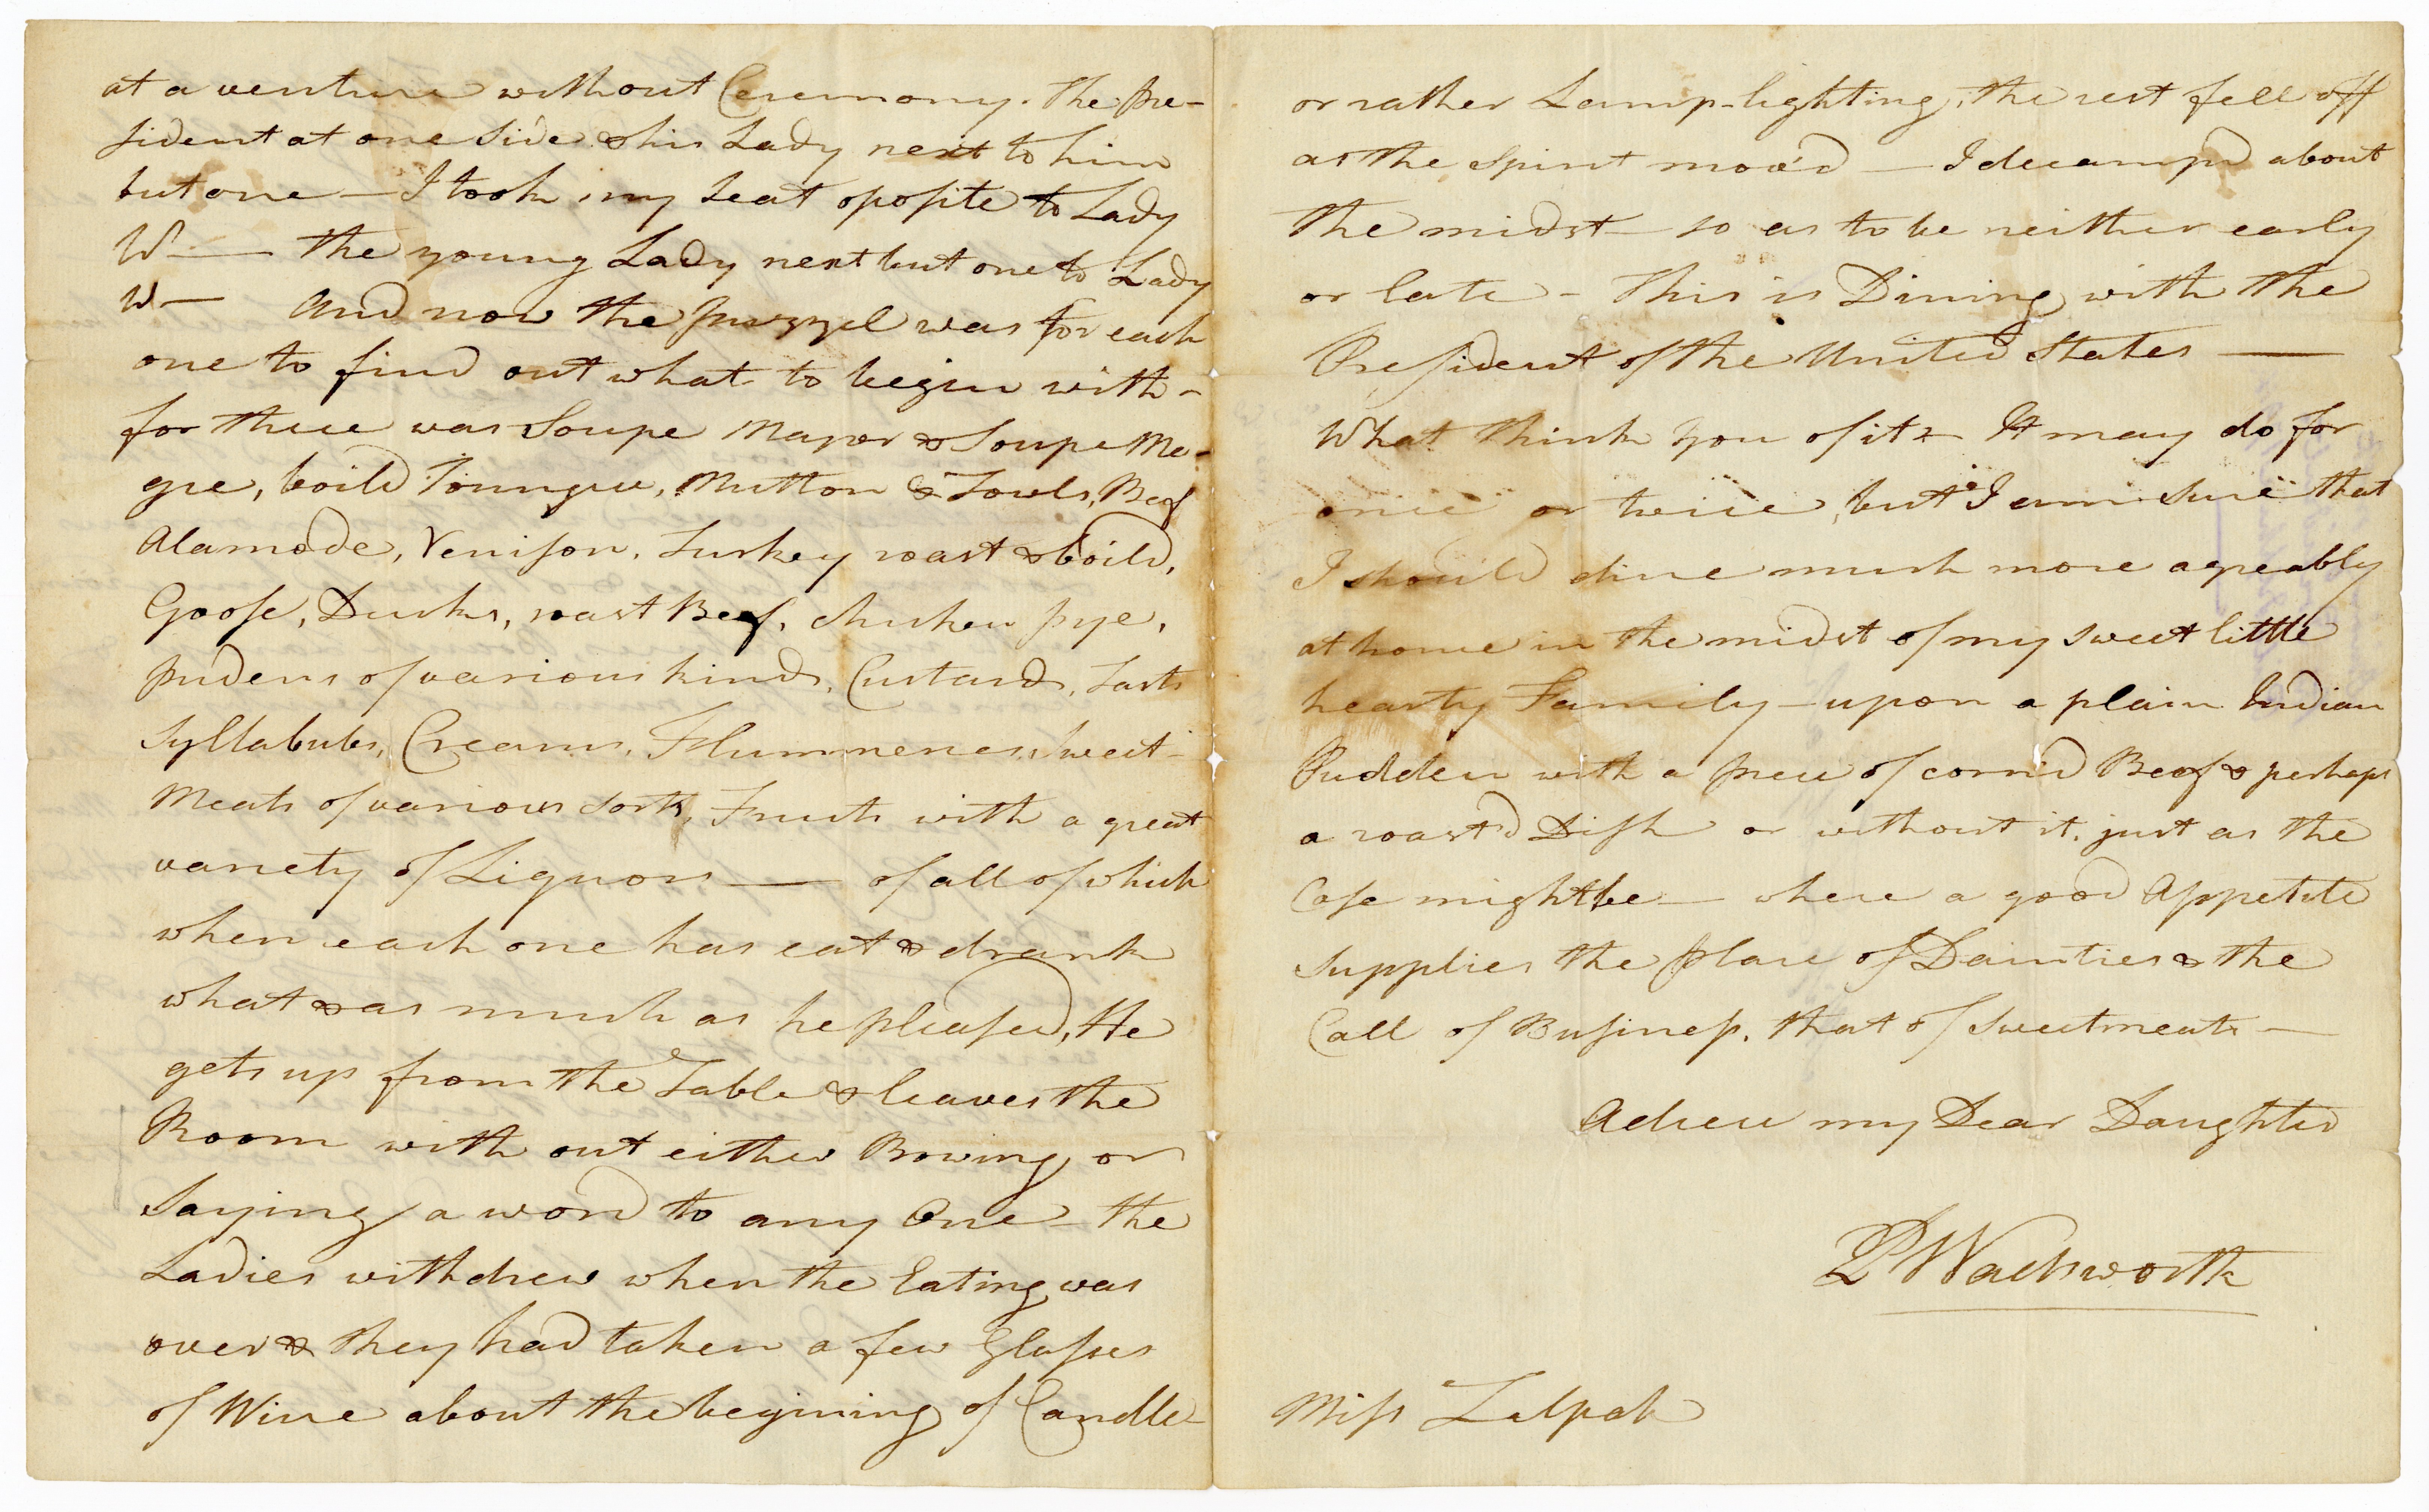 at a venture without Ceremony. The Pre-
sident at one side & his Lady next to him
but one — I took my seat oposite to Lady
W — the young Lady next but one to Lady
W — And now the puzzel was for each
one to find out what to begin with -
for there was Soupe Mayor & Soupe Me-
gre, boild Toungue, Mutton & Fowls, Beef
Alamode, Venison, Turkey roast & boild,
Goose, Ducks, roast Beef, chicken pye,
pudens of various kinds, Custards, Tarts
Syllabubs, Creams, Flummeries, Sweet-
Meats of various sorts, Fruits with a great
variety of Liquors — of all of which
when each one has eat & drank
what & as much as he pleased, He
gets up from the Table & leaves the
Room with out either Bowing or
saying a word to any One - the
Ladies withdrew when the Eating was
over & they had taken a few Glasses
of Wine about the begining of Candle
or rather Lamp-lighting, the rest fell off
as the Spirit mov'd — I decamp'd about
the midst — so as to be neither early
or late - This is Dining with the
President of the United States —
What think you of it - It may do for
once or twice, but I am sure that
I should dine much more agreably
at home in the midst of my sweet little
hearty Family - upon a plain Indian
Pudden with a piece of corn'd Beef & perhaps
a roast'd Dish or without it, just as the
Case might be — where a good Appetite
supplies the place of Dainties & the
Call of Business, that of Sweetmeats —
Adieu my Dear Daughter
P Wadsworth
Miss Zilpah